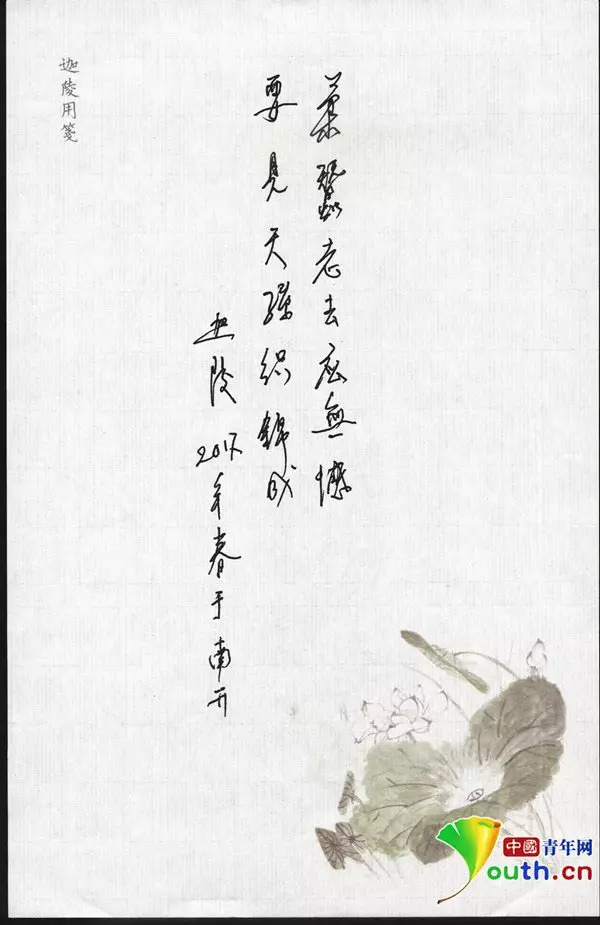 柔蠶老去应無憾
要見天孫織錦成
迦陵 2017年春于南开
迦陵用箋
中國青年网
Youth.cn